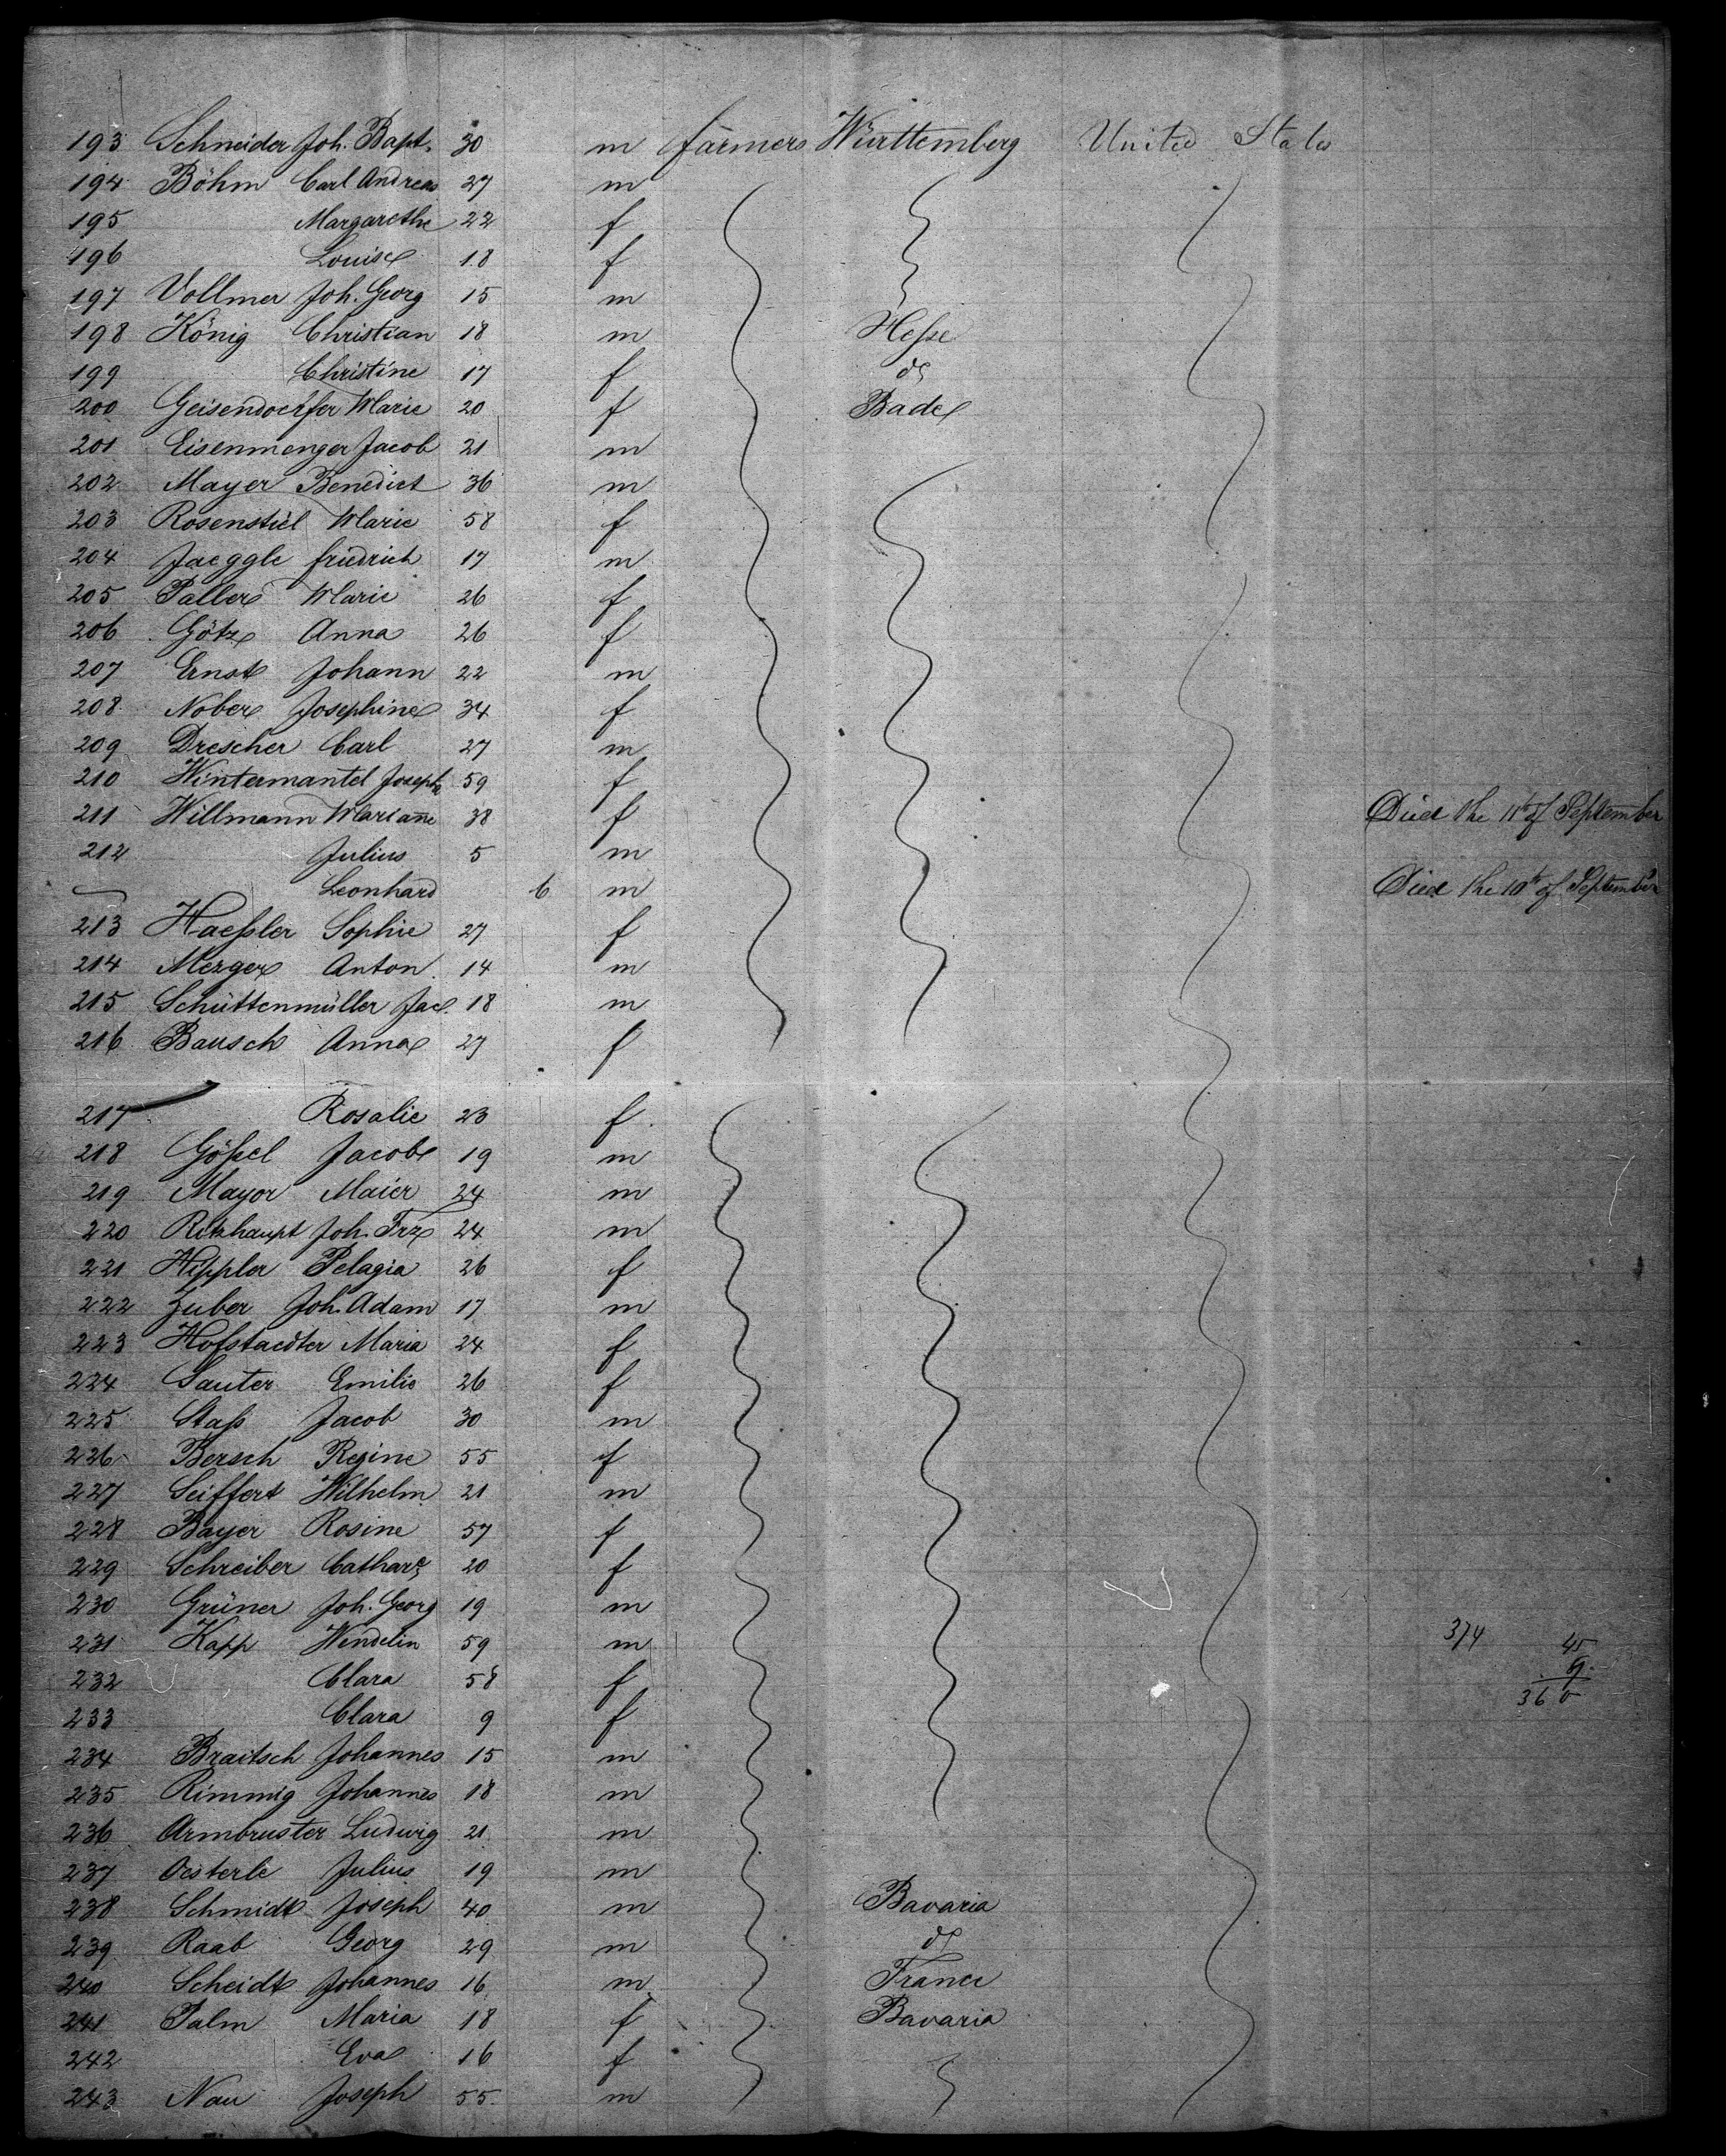 193 Schneider Joh. Bapt. 30 m farmers Württemberg United States
194 Böhm Carl Andreas 27 m
195 Margarethe 22 f
196 Louise 18 f
197 Vollmer Joh. Georg 15 m
198 König Christian 18 m Heſse
199 Christine 17 f do
200 Geisendoerfer Marie 20 f Bade
201 Eisenmenger Jacob 21 m
202 Mayer Benedict 36 m
203 Rosenstiel Marie 58 f
204 Jaeggle friedrich 17 m
205 Marie 26 f
206 Götz Anna 26 f
207 Ernst Johann 22 m
208 Nober Josephine 34 f
209 Drescher Carl 27 m
210 Wintermantel Joseph 59 f
211 Willmann Mariane 38 f Died the 11th of September
212 Julius 5 m
Leonhard 6 m Died the 10th of September
213 Haeſsler Sophie 27 f
214 Merger Anton 14 m
215 Schüttenmüller Jac. 18 m
216 Bausch Anna 27 f
217 Rosalie 23 f
218 Jacob 19 m
219 Mayor Maier 24 m
220 Ritzhaupt Joh. Frz 24 m
221 Hippler Pelagia 26 f
222 Zuber Joh. Adam 17 m
223 Hofstaedter Maria 24 f
224 Sauter Emilie 26 f
225 Staſs Jacob 30 m
226 Bersch Regine 55 f
227 Seiffert Wilhelm 21 m
228 Bayer Rosine 57 f
229 Schreiber Cathar. 20 f
230 Grüner Joh. Georg 19 m
231 Kapp Wendelin 59 m 374 45
232 Clara 58 f 9.
233 Clara 9 f 360
234 Braitsch Johannes 15 m
235 Rimmig Johannes 18 m
236 Armbruster Ludwig 21 m
237 Oesterle Julius 19 m
238 Schmidt Joseph 40 m Bavaria
239 Raab Georg 29 m do
240 Scheidt Johannes 16 m France
241 Palm Maria 18 f Bavaria
242 Eva 16 f
243 Nau Joseph 55 m